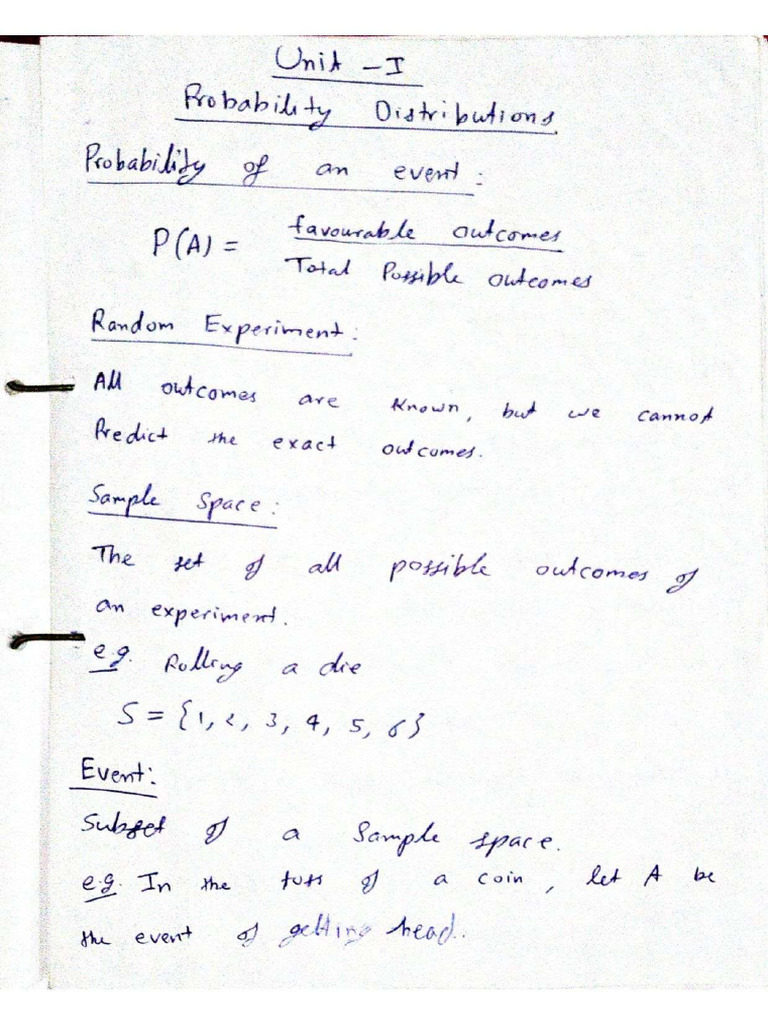 Unit - I
Probability Distributions
Probability of an event:
P(A) = favourable outcomes
Total Possible outcomes
Random Experiment:
All outcomes are known, but we cannot
Predict the exact outcomes.
Sample Space:
The set of all possible outcomes of
an experiment.
e.g. Rolling a die
S = {1, 2, 3, 4, 5, 6}
Event:
Subset of a Sample space.
e.g. In the toss of a coin, let A be
the event of getting head.